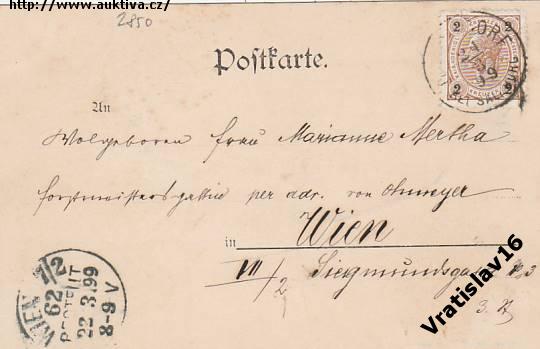 http://www.auktiva.cz/
2850
Postkarte.
2 2
2 2
99
An
Wolgeboren Frau Marianne Mertha
Forstmeistersgattin per adr. von Ohmeyer
in Wien
VII/2 Siegmundsgasse № 3
3. St
WIEN 7/2
62
BESTELLT
22.3.99
8-9 V
Vratislav16